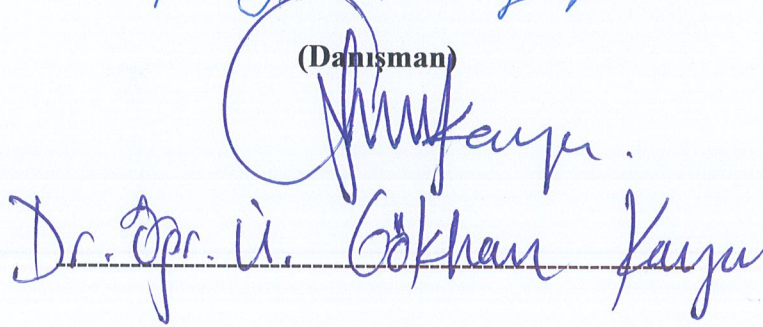 (Danışman)
Dr. Öğr. Ü. Gökhan Kaya